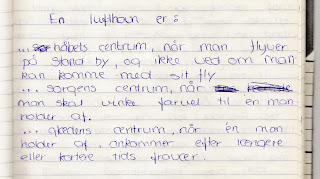 En lufthavn er:
... håbets centrum, når man flyver
på stand by, og ikke ved om man
kan komme med sit fly
... sorgens centrum, når
man skal vinke farvel til en man
holder af.
... glædens centrum, når én man
holder af, ankommer efter længere
eller kortere tids fravær.